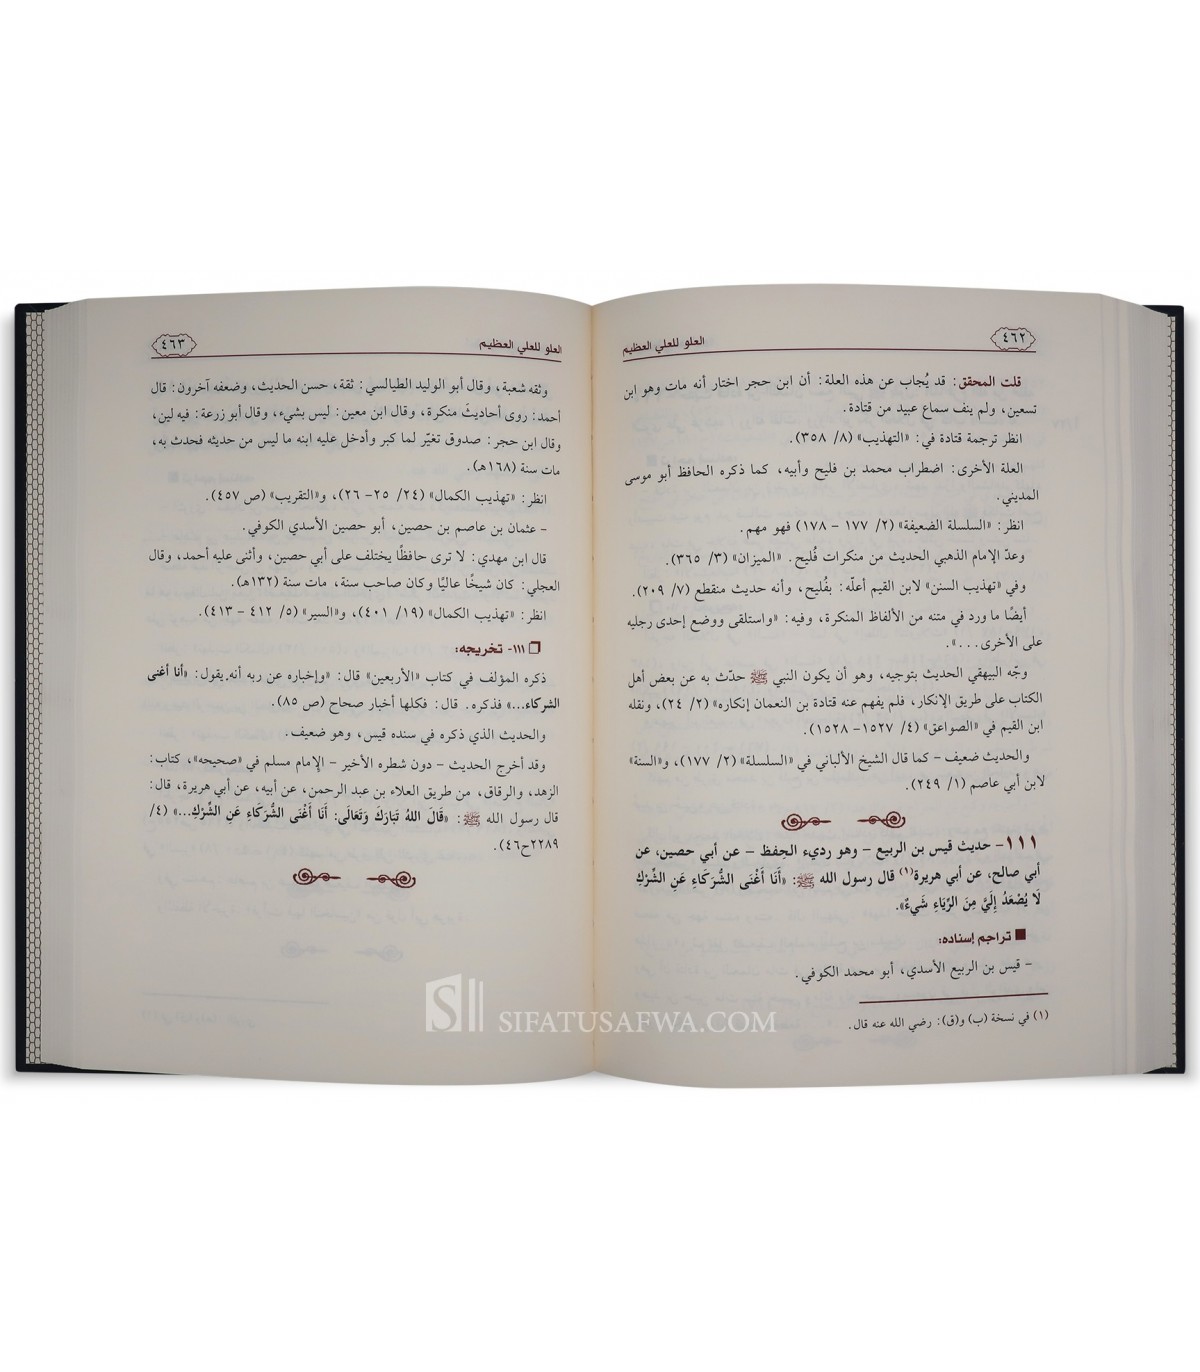 ٤٦٢
العلو للعلي العظيم
قلت المحقق: قد يُجاب عن هذه العلة: أن ابن حجر اختار أنه مات وهو ابن
تسعين، ولم ينف سماع عبيد من قتادة.
انظر ترجمة قتادة في: «التهذيب» (٨/ ٣٥٨).
العلة الأخرى: اضطراب محمد بن فليح وأبيه، كما ذكره الحافظ أبو موسى
المديني.
انظر: «السلسلة الضعيفة» (٢/ ١٧٧ - ١٧٨) فهو مهم.
وعدّ الإمام الذهبي الحديث من منكرات فُليح. «الميزان» (٣/ ٣٦٥).
وفي «تهذيب السنن» لابن القيم أعلّه: بفُليح، وأنه حديث منقطع (٧/ ٢٠٩).
أيضًا ما ورد في متنه من الألفاظ المنكرة، وفيه: «واستلقى ووضع إحدى رجليه
على الأخرى...».
وجّه البيهقي الحديث بتوجيه، وهو أن يكون النبي ﷺ حدّث به عن بعض أهل
الكتاب على طريق الإنكار، فلم يفهم عنه قتادة بن النعمان إنكاره» (٢/ ٢٤)، ونقله
ابن القيم في «الصواعق» (٤/ ١٥٢٧- ١٥٢٨).
والحديث ضعيف - كما قال الشيخ الألباني في «السلسلة» (٢/ ١٧٧)، و«السنة»
لابن أبي عاصم (١/ ٢٤٩).
١١١- حديث قيس بن الربيع - وهو رديء الحِفظ - عن أبي حصين، عن
أبي صالح، عن أبي هريرة(١) قال رسول الله ﷺ: «أَنَا أَغْنَى الشُّرَكَاءِ عَنِ الشِّرْكِ
لَا يُصْعَدُ إِلَيَّ مِنَ الرِّيَاءِ شَيءٌ».
تراجم إسناده:
- قيس بن الربيع الأسدي، أبو محمد الكوفي.
(١) في نسخة (ب) و(ق): رضي الله عنه قال.
العلو للعلي العظيم
٤٦٣
وثقه شعبة، وقال أبو الوليد الطيالسي: ثقة، حسن الحديث، وضعفه آخرون: قال
أحمد: روى أحاديثَ منكرة، وقال ابن معين: ليس بشيء، وقال أبو زرعة: فيه لين،
وقال ابن حجر: صدوق تغيّر لما كبر وأدخل عليه ابنه ما ليس من حديثه فحدث به،
مات سنة (١٦٨هـ).
انظر: «تهذيب الكمال» (٢٤/ ٢٥- ٢٦)، و«التقريب» (ص ٤٥٧).
- عثمان بن عاصم بن حصين، أبو حصين الأسدي الكوفي.
قال ابن مهدي: لا ترى حافظًا يختلف على أبي حصين، وأثنى عليه أحمد، وقال
العجلي: كان شيخًا عاليًا وكان صاحب سنة، مات سنة (١٣٢هـ).
انظر: «تهذيب الكمال» (١٩/ ٤٠١)، و«السير» (٥/ ٤١٢ - ٤١٣).
١١١- تخريجه:
ذكره المؤلف في كتاب «الأربعين» قال: «وإخباره عن ربه أنه يقول: «أنا أغنى
الشركاء...» فذكره. قال: فكلها أخبار صحاح (ص ٨٥).
والحديث الذي ذكره في سنده قيس، وهو ضعيف.
وقد أخرج الحديث - دون شطره الأخير - الإمام مسلم في «صحيحه»، كتاب:
الزهد، والرقاق، من طريق العلاء بن عبد الرحمن، عن أبيه، عن أبي هريرة، قال:
قال رسول الله ﷺ: «قَالَ اللهُ تَبَارَكَ وَتَعَالَى: أَنَا أَغْنَى الشُّرَكَاءِ عَنِ الشِّرْكِ...» (٤/
٢٢٨٩ح٤٦).
SIFATUSAFWA.COM